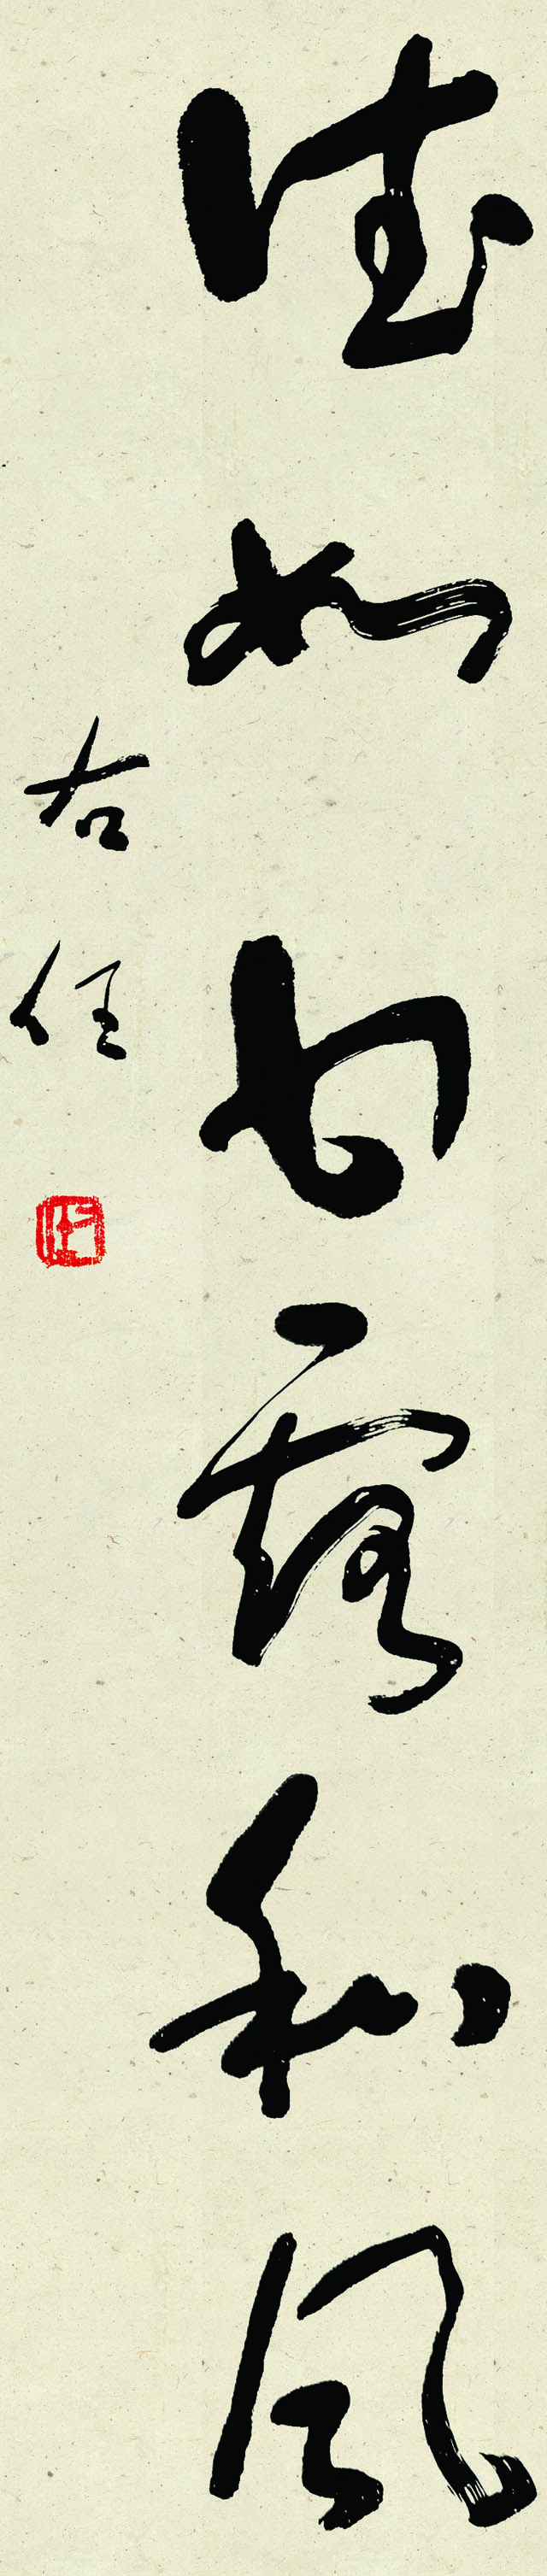 德如甘露和風
右任